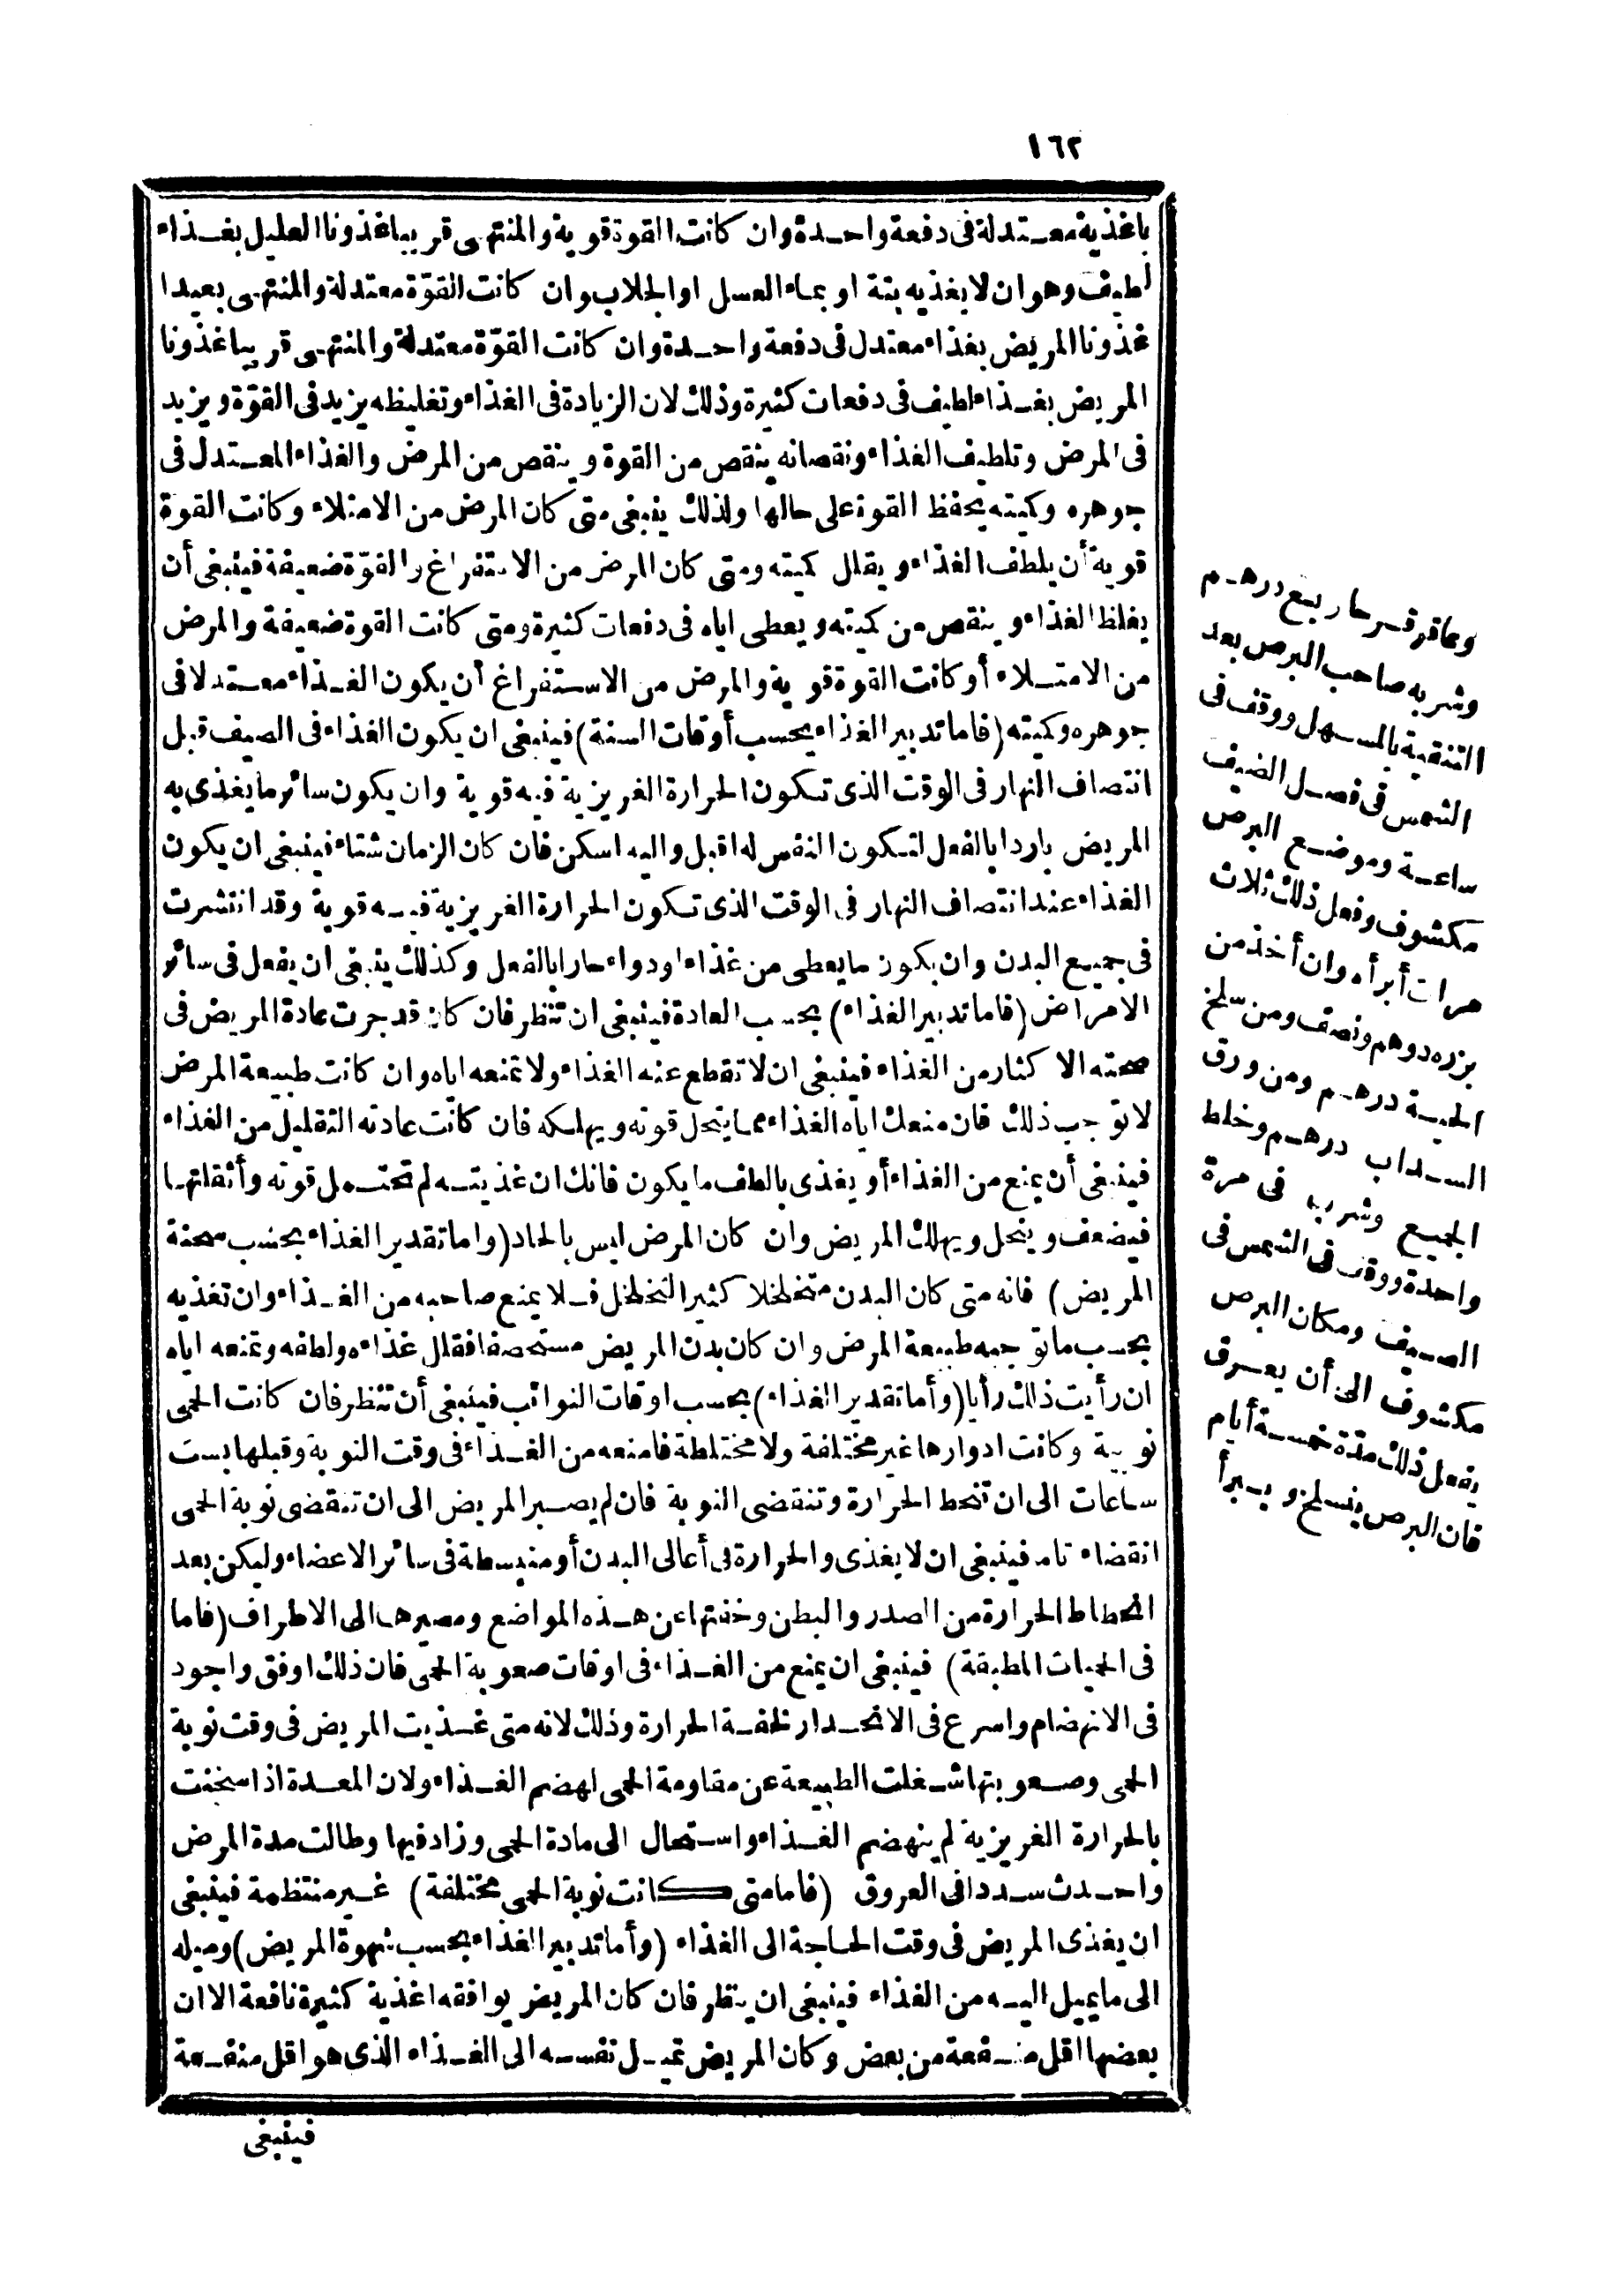 ١٦٢
باغذية معتدلة فى دفعة واحدة وان كانت القوة قوية والمنتهى قريبا غذونا العليل بغذاء
لطيف وهو ان لا يغذيه بتة او بماء العسل او الجلاب وان كانت القوّة معتدلة والمنتهى بعيدا
غذونا المريض بغذاء معتدل فى دفعة واحدة وان كانت القوّة معتدلة والمنتهى قريبا غذونا
المريض بغذاء لطيف فى دفعات كثيرة وذلك لان الزيادة فى الغذاء وتغليظه يزيد فى القوّة ويزيد
فى المرض وتلطيف الغذاء ونقصانه ينقص من القوة وينقص من المرض والغذاء المعتدل فى
جوهره وكيته يحفظ القوة على حالها ولذلك ينبغى متى كان المرض من الامتلاء وكانت القوة
قوية أن يلطف الغذاء ويقلل كميته ومتى كان المرض من الاستفراغ والقوّة ضعيفة فينبغى أن
يغلظ الغذاء وينقص من كميته ويعطى اياه فى دفعات كثيرة ومتى كانت القوة ضعيفة والمرض
من الامتلاء أو كانت القوة قوية والمرض من الاستفراغ أن يكون الغذاء معتدلا فى
جوهره وكيته (فاما تدبير الغذاء بحسب أوقات السنة) فينبغى ان يكون الغذاء فى الصيف قبل
انتصاف النهار فى الوقت الذى تكون الحرارة الغريزية فيه قوية وان يكون سائر ما يغذى به
المريض باردا بالفعل لتكون النفس له اقبل واليه اسكن فان كان الزمان شتاء فينبغى ان يكون
الغذاء عند انتصاف النهار فى الوقت الذى تكون الحرارة الغريزية فيه قوية وقد انتشرت
فى جميع البدن وان يكون ما يعطى من غذاء او دواء حارا بالفعل وكذلك ينبغى ان يفعل فى سائر
الامراض (فاما تدبير الغذاء) بحسب العادة فينبغى ان تنظر فان كان قد جرت عادة المريض فى
صحته الاكثار من الغذاء فينبغى ان لا تقطع عنه الغذاء ولا تمنعه اياه وان كانت طبيعة المرض
لا توجب ذلك فان منعك اياه الغذاء مما ينحل قوته ويهلكه فان كانت عادته التقليل من الغذاء
فينبغى أن يمنع من الغذاء أو يغذى بالطف ما يكون فانك ان غذيته لم تحتمل قوته وأثقلتها
فيضعف وينحل ويهلك المريض وان كان المرض ليس بالحاد (واما تقدير الغذاء بحسب سحنة
المريض) فانه متى كان البدن متخلخلا كثير التخلخل فلا يمنع صاحبه من الغذاء وان تغذيه
بحسب ما توجبه طبيعة المرض وان كان بدن المريض مستحصفا فقلل غذاءه ولطفه وتمنعه اياه
ان رأيت ذلك رأيا (وأما تقدير الغذاء) بحسب اوقات النوائب فينبغى أن تنظر فان كانت الحمى
نوبية وكانت ادوارها غير مختلفة ولا مختلطة فامنعه من الغذاء فى وقت النوبة وقبلها بست
ساعات الى ان تنحط الحرارة وتنقضى النوبة فان لم يصبر المريض الى ان تنقضى نوبة الحمى
انقضاء تاما فينبغى ان لا يغذى والحرارة فى أعالى البدن أو منبسطة فى سائر الاعضاء وليكن بعد
انحطاط الحرارة من الصدر والبطن وخفتها عن هذه المواضع ومصيرها الى الاطراف (فاما
فى الحميات المطبقة) فينبغى ان يمنع من الغذاء فى اوقات صعوبة الحمى فان ذلك اوفق واجود
فى الانهضام واسرع فى الانحدار لخفة الحرارة وذلك لانه متى غذيت المريض فى وقت نوبة
الحمى وصعوبتها شغلت الطبيعة عن مقاومة الحمى لهضم الغذاء ولان المعدة اذا سخنت
بالحرارة الغريزية لم ينهضم الغذاء واستحال الى مادة الحمى وزاد فيها وطالت مدة المرض
واحدث سددا فى العروق (فاما متى كانت نوبة الحمى مختلفة) غير منتظمة فينبغى
ان يغذى المريض فى وقت الحاجة الى الغذاء (وأما تدبير الغذاء بحسب شهوة المريض) وميله
الى ما يميل اليه من الغذاء فينبغى ان ينظر فان كان المريض يوافقه اغذية كثيرة نافعة الا ان
بعضها اقل منفعة من بعض وكان المريض تميل نفسه الى الغذاء الذى هو اقل منفعة
فينبغى
وعاقر قرحا ربع درهم
وشربه صاحب البرص بعد
التنقية بالمسهل ووقف فى
الشمس فى فصل الصيف
ساعة وموضع البرص
مكشوف وفعل ذلك ثلاث
مرات أبرأه وان أخذ من
بزره درهم ونصف ومن سلخ
الحية درهم ومن ورق
السداب درهم وخلط
الجميع وشرب فى مرة
واحدة ووقف فى الشمس فى
الصيف ومكان البرص
مكشوف الى أن يعرق
يفعل ذلك مدّة خمسة أيام
فان البرص ينسلخ ويبرأ